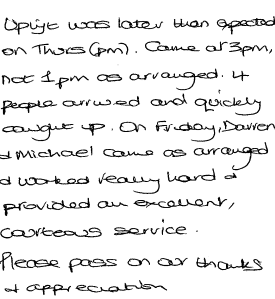 Uplift was later than expected
on Thurs (pm). Came at 3pm,
not 1pm as arranged. 4
people arrived and quickly
caught up. On Friday, Darren
& Michael came as arranged
& worked really hard &
provided an excellent,
courteous service.
Please pass on our thanks
& appreciation